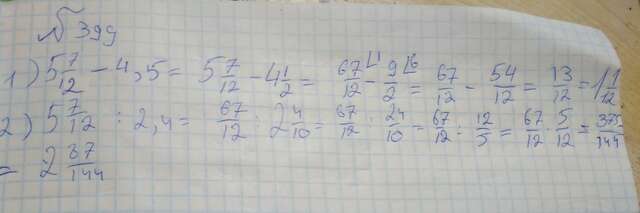 № 399
1) 5 7/12 - 4,5 = 5 7/12 - 4 1/2 = 67/12 - 9/2 = 67/12 - 54/12 = 13/12 = 1 1/12
2) 5 7/12 : 2,4 = 67/12 : 2 4/10 = 67/12 : 24/10 = 67/12 : 12/5 = 67/12 · 5/12 = /144
= 2 87/144